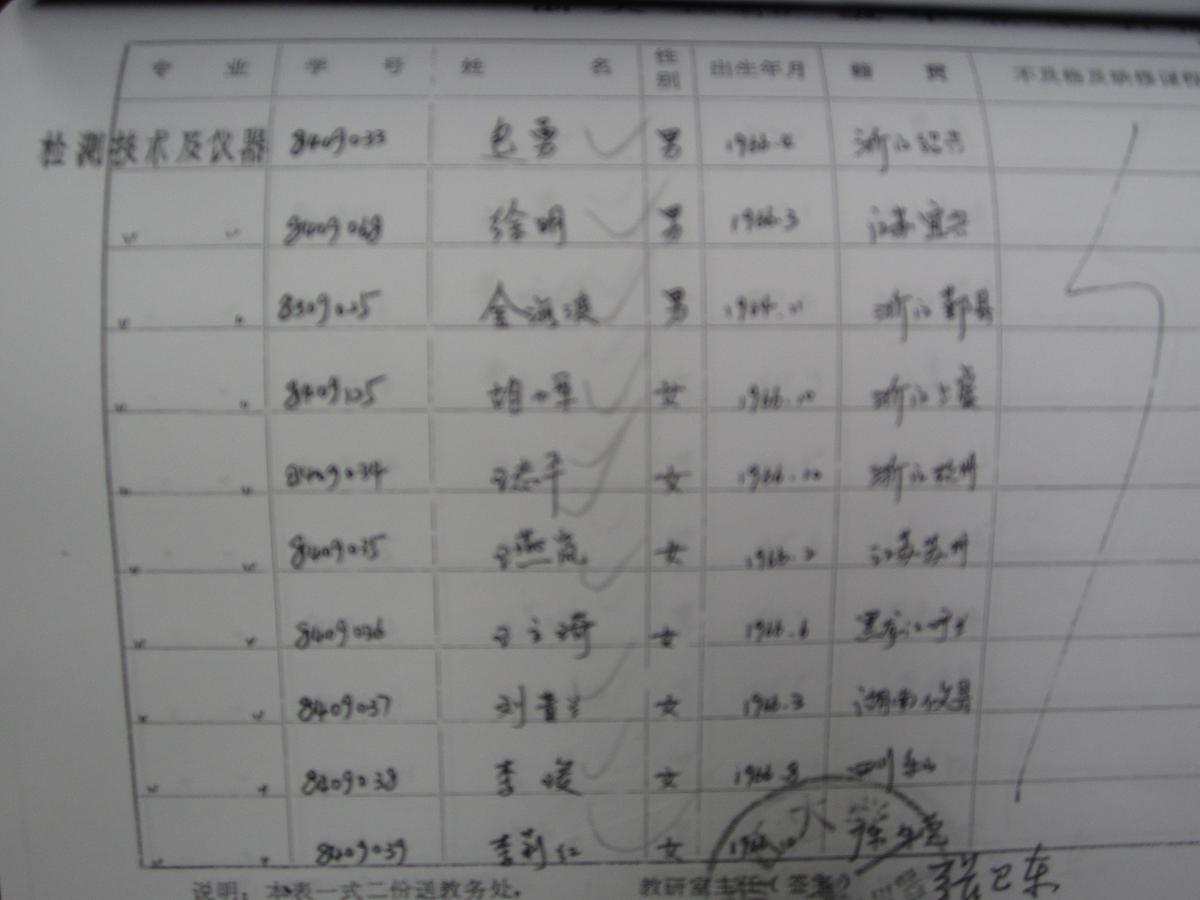 专 业 学 号 姓 名 性别 出生年月 籍 贯 不及格及缺修课程
检测技术及仪器 8409033 包勇 男 1966.4 浙江绍兴
〃 〃 8409068 徐明 男 1966.3 江苏宜兴
〃 〃 8309025 金海波 男 1964.11 浙江鄞县
〃 〃 8409125 女 1966.10 浙江上虞
〃 〃 8409034 王杰平 女 1966.10 浙江杭州
〃 〃 8409035 王燕岚 女 1966.2 江苏苏州
〃 〃 8409036 女 1966.6 黑龙江
〃 〃 8409037 刘 女 1966.3 湖南攸县
〃 〃 8409038 李 女 1966.8 四川
〃 〃 8409039 李莉红 女
说明：本表一式二份送教务处。 教研室主任（签名） 张卫东